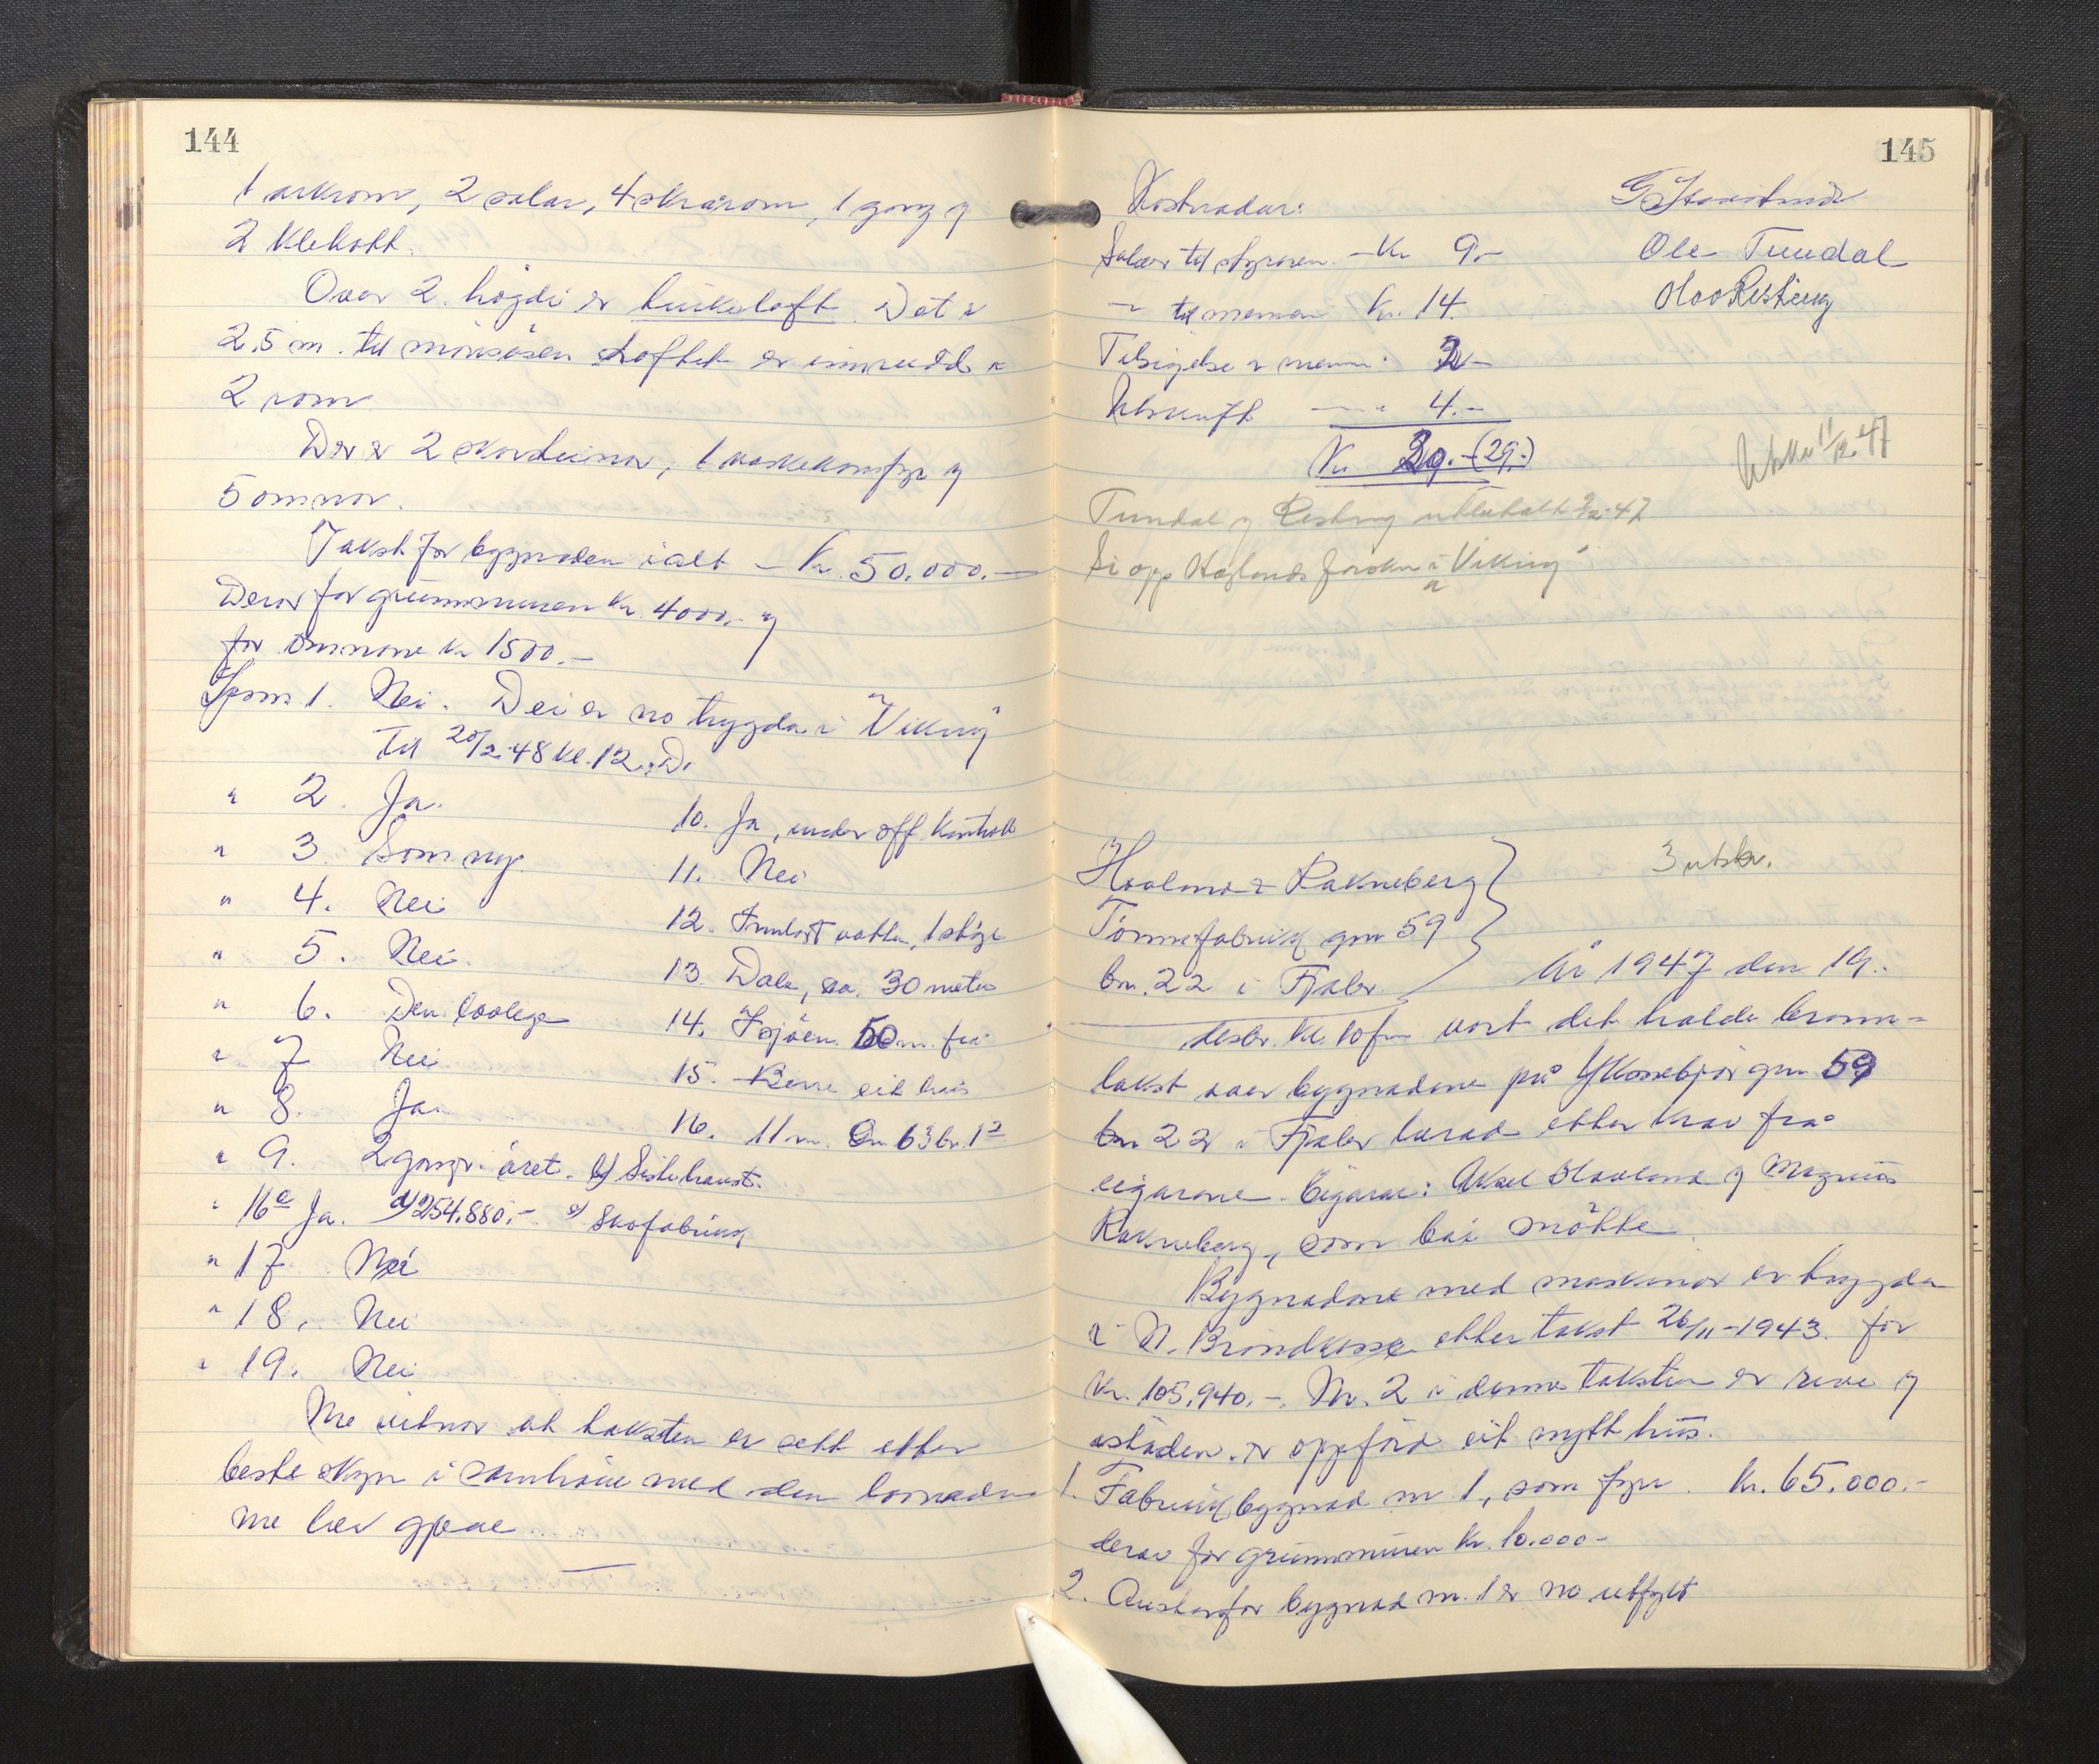 144
1 arkrom, 2 salar, 4 skrårom, 1 gong og
2 klekott.
Over 2. högdi er turkeloft. Det er
2,5 m. til mönsåsen Loftet er innreidd
2 rom
Der er 2 skorsteinar, 1 vaskekomfyr og
5 omnar.
Takst for bygnaden ialt – Kr. 50.000.–
Derav for grunnmuren kr. 4000,- og
for omnane kr 1500.–
Spm 1. Nei. Dei er no trygda i "Viking"
til 20/2-48 kl. 12. D.
" 2. Ja.
" 3. Som ny.
" 4. Nei
" 5. Nei.
" 6. Den lovlege
" 7 Nei
" 8. Ja.
" 9. 2 gonger i året. b) Siste haust.
10. Ja, under off. kontroll
11. Nei
12. Innlagt vatten, 1 stige
13. Dale, ca. 30 meter
14. Sjöen 50 m. frå
15. Berre eit hus
16. 11 m. Gn 63 br. 12
" 16c Ja. d) 254.880,- e) Skofabrikk
" 17 Nei
" 18. Nei
" 19. Nei
Me vitnar at taksten er sett etter
beste skyn i samhöve med den lovnaden
me har gjeve
145
Kostnadar:
Salær til styraren – Kr 9.–
– til mennene Kr. 14.
Tilsigelse av menn: 2.–
Utskrift – " 4.–
Kr 29.– (29.-)
Ole Tundal
Olav Restreng
Utskr 11/12-47
Tundal og Restreng utbetalt 9/12-47
Si opp Haglunds forsikr i "Viking"
3 utskr.
Hovland & Rakneberg
Tönnefabrikk gnr 59
bn. 22 i Fjaler
År 1947 den 19.
desbr. kl. 10 fm vart det halde brann=
takst over bygnadene på Yksnebjör gnr 59
bn 22 i Fjaler herad etter krav frå
eigarane. Eigarar: Aksel Hovland og Magnus
Rakneberg, som bai mötte.
Bygnadene med maskinar er trygda
i N. Brandkasse etter takst 26/11-1943 for
kr. 105.940,-. Nr. 2 i denne taksten er reve og
istaden er oppförd eit nytt hus.
1. Fabrikkbygnad nr 1, som fyrr. Kr. 65.000.-
derav for grunnmuren kr. 10.000-
2. Austanfor bygnad nr. 1 er no utfylt